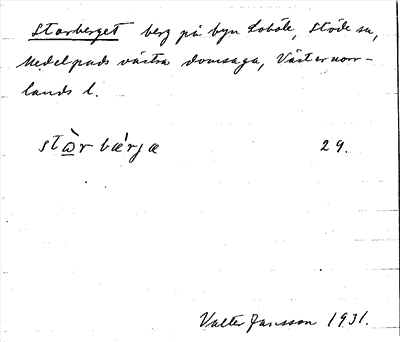 Storberget berg på byn Loböle, Stöde sn,
Medelpads västra domsaga, Västernorr-
lands l.
stὼr bæ´rja 29.
Valter Jansson 1931.